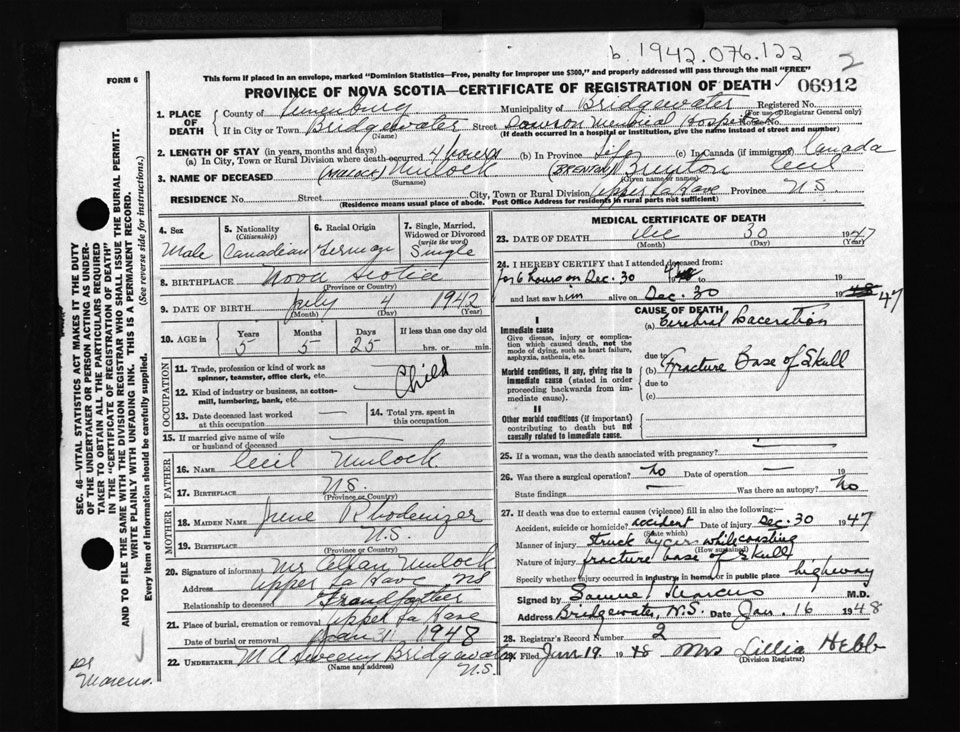 b. 1942.076.122
2
FORM 6
This form if placed in an envelope, marked "Dominion Statistics—Free, penalty for improper use $300," and properly addressed will pass through the mail "FREE"
PROVINCE OF NOVA SCOTIA—CERTIFICATE OF REGISTRATION OF DEATH 06912
1. PLACE OF DEATH
County of Lunenburg Municipality of Bridgewater Registered No.
(For use of Registrar General only)
If in City or Town Bridgewater Street Dawson Memorial Hospital No.
(Name) (If death occurred in a hospital or institution, give the name instead of street and number)
2. LENGTH OF STAY (in years, months and days)
(a) In City, Town or Rural Division where death occurred 4 hours (b) In Province Life (c) In Canada (if immigrant) Canada
3. NAME OF DECEASED (MULOCK) Mulock (BRENTON) Brenton Cecil
(Surname) (Given name or names)
RESIDENCE No. Street City, Town or Rural Division Upper LaHave Province N.S.
(Residence means usual place of abode. Post Office Address for residents in rural parts not sufficient)
4. Sex Male
5. Nationality (Citizenship) Canadian
6. Racial Origin German
7. Single, Married, Widowed or Divorced (write the word) Single
8. BIRTHPLACE Nova Scotia
(Province or Country)
9. DATE OF BIRTH July 4 1942
(Month) (Day) (Year)
10. AGE in Years 5 Months 5 Days 25 If less than one day old hrs. or min.
OCCUPATION
11. Trade, profession or kind of work as spinner, teamster, office clerk, etc. —
12. Kind of industry or business, as cotton-mill, lumbering, bank, etc. — Child
13. Date deceased last worked at this occupation —
14. Total yrs. spent in this occupation
15. If married give name of wife or husband of deceased —
FATHER
16. NAME Cecil Mulock
17. BIRTHPLACE N.S.
(Province or Country)
MOTHER
18. MAIDEN NAME Irene Rhodenizer
19. BIRTHPLACE N.S.
(Province or Country)
20. Signature of informant Mr Allan Mulock
Address Upper LaHave NS
Relationship to deceased Grandfather
21. Place of burial, cremation or removal Upper LaHave
Date of burial or removal Jan 1 1948
22. UNDERTAKER M A Sweeny Bridgewater N.S.
(Name and address)
MEDICAL CERTIFICATE OF DEATH
23. DATE OF DEATH Dec 30 1947
(Month) (Day) (Year)
24. I HEREBY CERTIFY that I attended deceased from:
for 6 hours on Dec. 30 19
and last saw him alive on Dec. 30 19 48 47
CAUSE OF DEATH
I
Immediate cause
Give disease, injury or complication which caused death, not the mode of dying, such as heart failure, asphyxia, asthenia, etc.
(a) Cerebral Laceration
due to
Morbid conditions, if any, giving rise to immediate cause (stated in order proceeding backwards from immediate cause).
(b) Fracture Base of Skull
due to
(c)
II
Other morbid conditions (if important) contributing to death but not causally related to immediate cause.
25. If a woman, was the death associated with pregnancy? —
26. Was there a surgical operation? No Date of operation — 19
State findings — Was there an autopsy? No
27. If death was due to external causes (violence) fill in also the following:—
Accident, suicide or homicide? accident Date of injury Dec. 30 1947
(State which)
Manner of injury Struck by car while coasting
(How sustained)
Nature of injury fracture base of skull
Specify whether injury occurred in industry, in home, or in public place highway
Signed by Samuel Marcus M.D.
Address Bridgewater, N.S. Date Jan. 16 1948
28. Registrar's Record Number 2
29. Filed Jan 19. 1948 Mrs Lillia Hebb
(Division Registrar)
SEC. 46—VITAL STATISTICS ACT MAKES IT THE DUTY OF THE UNDERTAKER OR PERSON ACTING AS UNDERTAKER TO OBTAIN ALL THE PARTICULARS REQUIRED IN THE "CERTIFICATE OF REGISTRATION OF DEATH" AND TO FILE THE SAME WITH THE DIVISION REGISTRAR WHO SHALL ISSUE THE BURIAL PERMIT.
WRITE PLAINLY WITH UNFADING INK. THIS IS A PERMANENT RECORD.
Every item of information should be carefully supplied. (See reverse side for instructions.)
Dr Marcus.